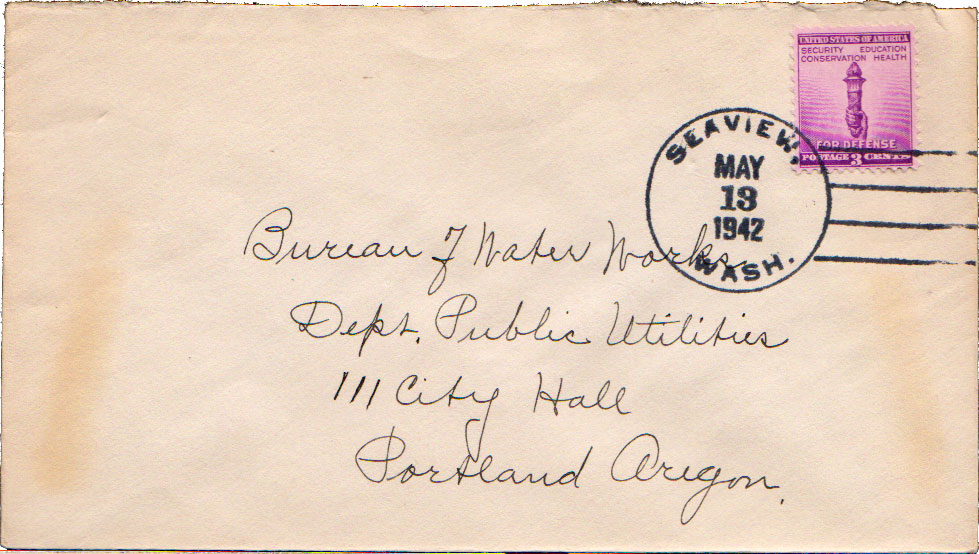 UNITED STATES OF AMERICA
SECURITY EDUCATION
CONSERVATION HEALTH
FOR DEFENSE
POSTAGE 3 CENTS
SEAVIEW,
MAY
13
1942
WASH.
Bureau of Water Works
Dept. Public Utilities
111 City Hall
Portland Oregon.